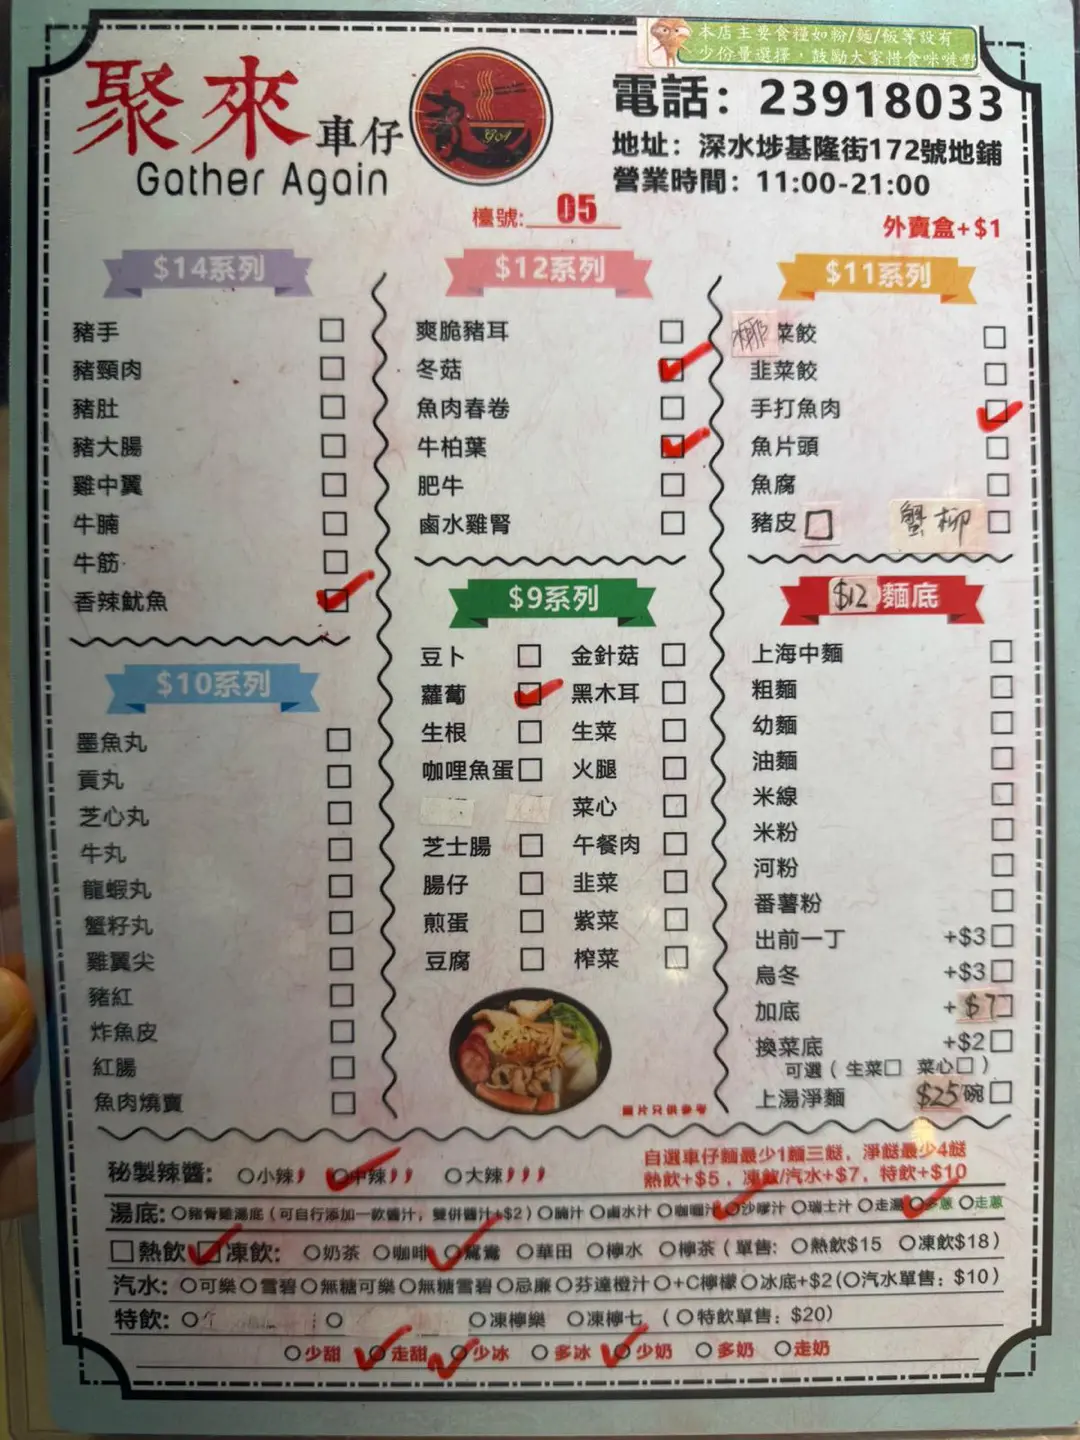 本店主要食糧如粉/麵/飯等設有
少份量選擇，鼓勵大家惜食咪嘥嘢
聚來車仔
Gather Again
電話：23918033
地址：深水埗基隆街172號地鋪
營業時間：11:00-21:00
檯號: 05
外賣盒+$1
$14系列
豬手
豬頸肉
豬肚
豬大腸
雞中翼
牛腩
牛筋
香辣魷魚
$12系列
爽脆豬耳
冬菇
魚肉春卷
牛柏葉
肥牛
鹵水雞腎
$11系列
椰菜餃
韭菜餃
手打魚肉
魚片頭
魚腐
豬皮 蟹柳
$10系列
墨魚丸
貢丸
芝心丸
牛丸
龍蝦丸
蟹籽丸
雞翼尖
豬紅
炸魚皮
紅腸
魚肉燒賣
$9系列
豆卜 金針菇
蘿蔔 黑木耳
生根 生菜
咖哩魚蛋 火腿
菜心
芝士腸 午餐肉
腸仔 韭菜
煎蛋 紫菜
豆腐 榨菜
圖片只供參考
$12麵底
上海中麵
粗麵
幼麵
油麵
米線
米粉
河粉
番薯粉
出前一丁 +$3
烏冬 +$3
加底 +$7
換菜底 +$2
可選（生菜 菜心）
上湯淨麵 $25碗
自選車仔麵最少1麵三餸，淨餸最少4餸
熱飲+$5，凍飲/汽水+$7，特飲+$10
秘製辣醬： 小辣 中辣 大辣
湯底: 豬骨雞湯底（可自行添加一款醬汁，雙併醬汁+$2） 腩汁 鹵水汁 咖喱汁 沙嗲汁 瑞士汁 走湯 多蔥 走蔥
熱飲 凍飲: 奶茶 咖啡 鴛鴦 華田 檸水 檸茶（單售: 熱飲$15 凍飲$18）
汽水: 可樂 雪碧 無糖可樂 無糖雪碧 忌廉 芬達橙汁 +C檸檬 冰底+$2(汽水單售: $10)
特飲: 凍檸樂 凍檸七 （特飲單售: $20）
少甜 走甜 少冰 多冰 少奶 多奶 走奶